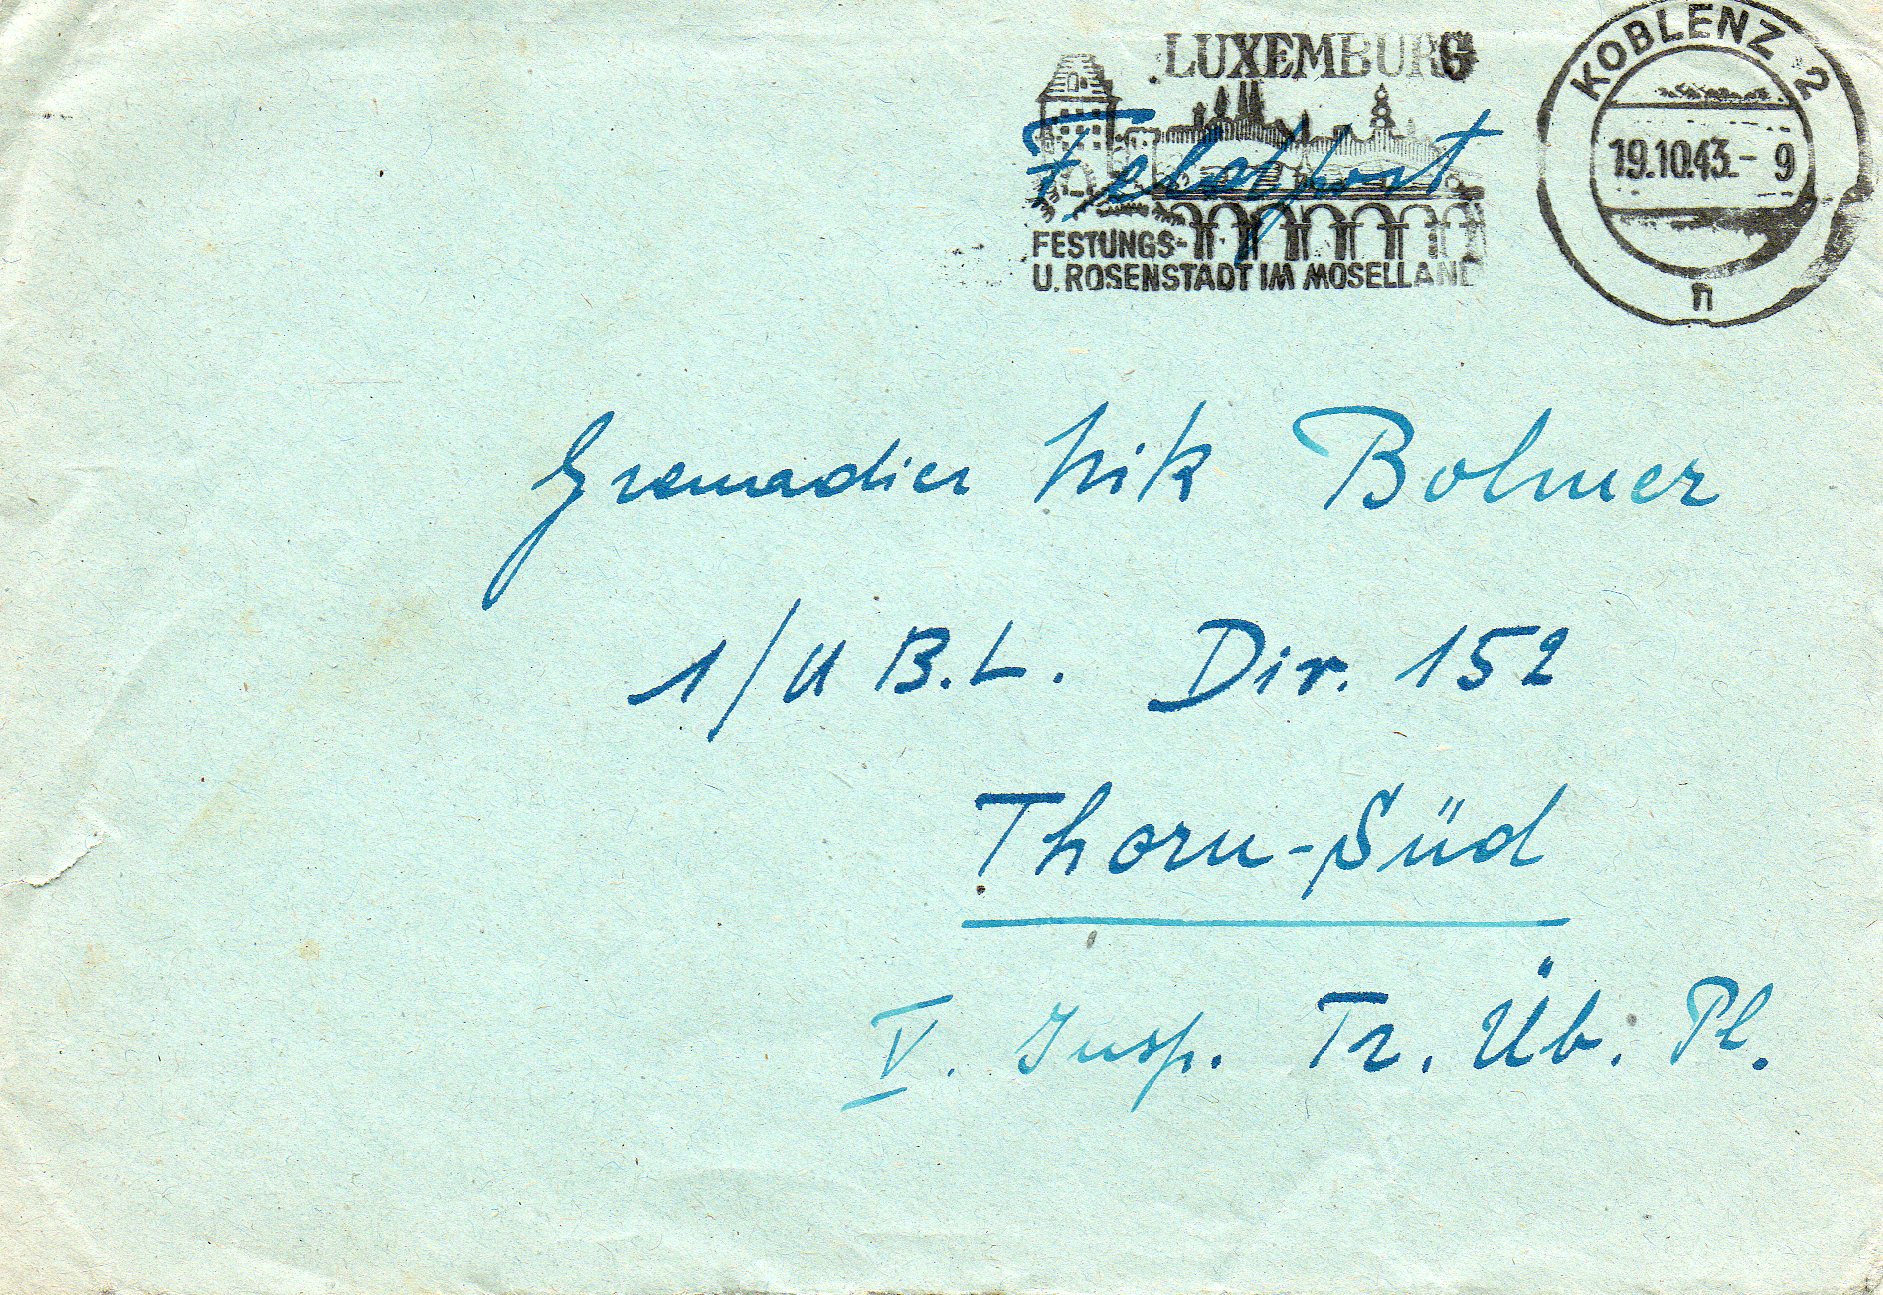 LUXEMBURG
FESTUNGS-
U. ROSENSTADT IM MOSELLAND
KOBLENZ 2
19.10.43.-9
n
Feldpost
Grenadier Nik Bolmer
1/U B.L. Dir. 152
Thorn-Süd
V. Insp. Tr. Üb. Pl.